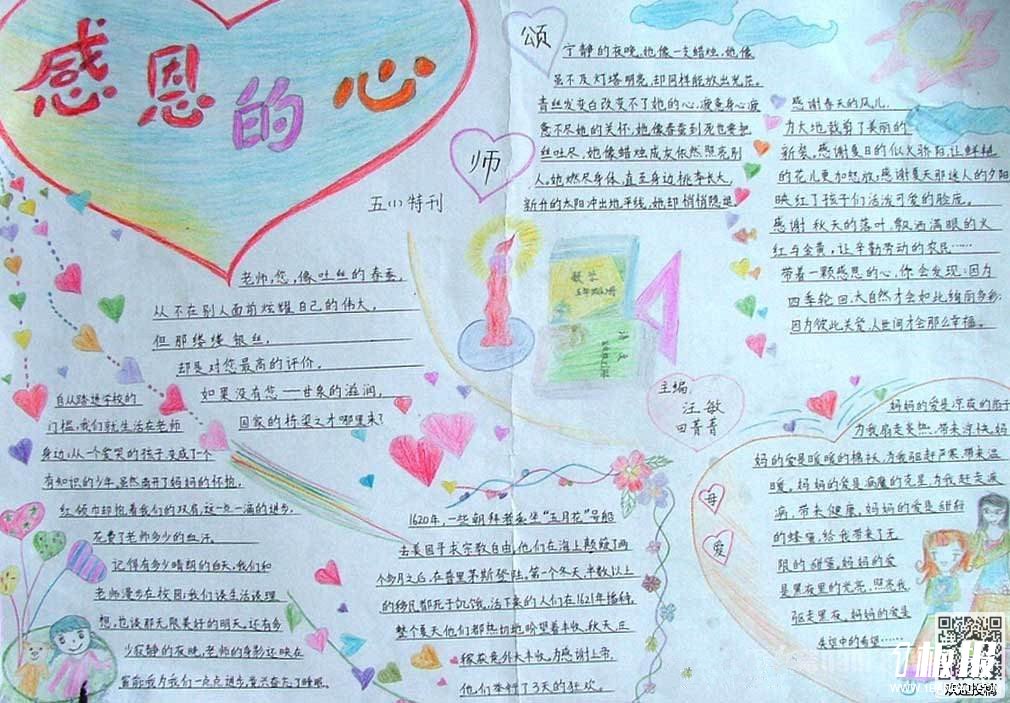 感恩的心
五(1)特刊
颂
师
宁静的夜晚,她像一支蜡烛,她像
虽不及灯塔明亮,却同样能放出光茫。
青丝发变白改变不了她的心,疲惫身心疲
惫不尽她的关怀,她像春蚕到死也要把
丝吐尽,她像蜡烛成灰依然照亮别
人。她燃尽身体,直至身边桃李长大,
新升的太阳冲出地平线,她却悄悄隐退
感谢春天的风儿,
为大地裁剪了美丽的
新装,感谢夏日的似火骄阳,让鲜艳
的花儿更加怒放,感谢夏天那迷人的夕阳
映红了孩子们活泼可爱的脸庞。
感谢秋天的落叶,散洒满眼的火
红与金黄,让辛勤劳动的农民……
带着一颗感恩的心,你会发现:因为
四季轮回,大自然才会如此绚丽多彩;
因为彼此关爱,人世间才会那么幸福。
老师,您,像吐丝的春蚕,
从不在别人面前炫耀自己的伟大,
但那缕缕银丝,
却是对您最高的评价。
如果没有您——甘泉的滋润,
国家的栋梁之才哪里来?
数学
五年级上册
语文
主编
汪敏
田菁菁
自从踏进学校的
门槛,我们就生活在老师
身边,从一个爱哭的孩子,变成了一个
有知识的少年,虽然离开了妈妈的怀抱,
红领巾却抱着我们的双肩,这一点一滴的进步,
花费了老师多少的血汗。
记得有多少晴朗的白天,我们和
老师漫步在校园;我们谈生活谈理
想,也谈那无限美好的明天,还有多
少寂静的夜晚,老师的身影还映在
窗前,我为我们一点点进步,竟兴奋忘了睡眠。
1620年,一些朝拜者乘坐“五月花”号船
去美国寻求宗教自由,他们在海上颠簸了两
个多月之后,在普里茅斯登陆。第一个冬天,半数以上
的移民都死于饥饿,活下来的人们在1621年播种,
整个夏天他们都热切地盼望着丰收,秋天,庄
稼获意外大丰收,为感谢上帝,
他们举行了3天的狂欢。
母
爱
妈妈的爱是凉夜的扇子
为我扇走炎热,带来凉快。妈
妈的爱是暖暖的棉袄,为我驱赶严寒,带来温
暖。妈妈的爱是病魔的克星,为我赶走疾
病,带来健康。妈妈的爱是甜甜
的蜂蜜,给我带来了无
限的甜蜜,妈妈的爱
是黑夜里的光亮,照亮我,
驱走黑夜,妈妈的爱是
失望中的希望……
欢迎投稿